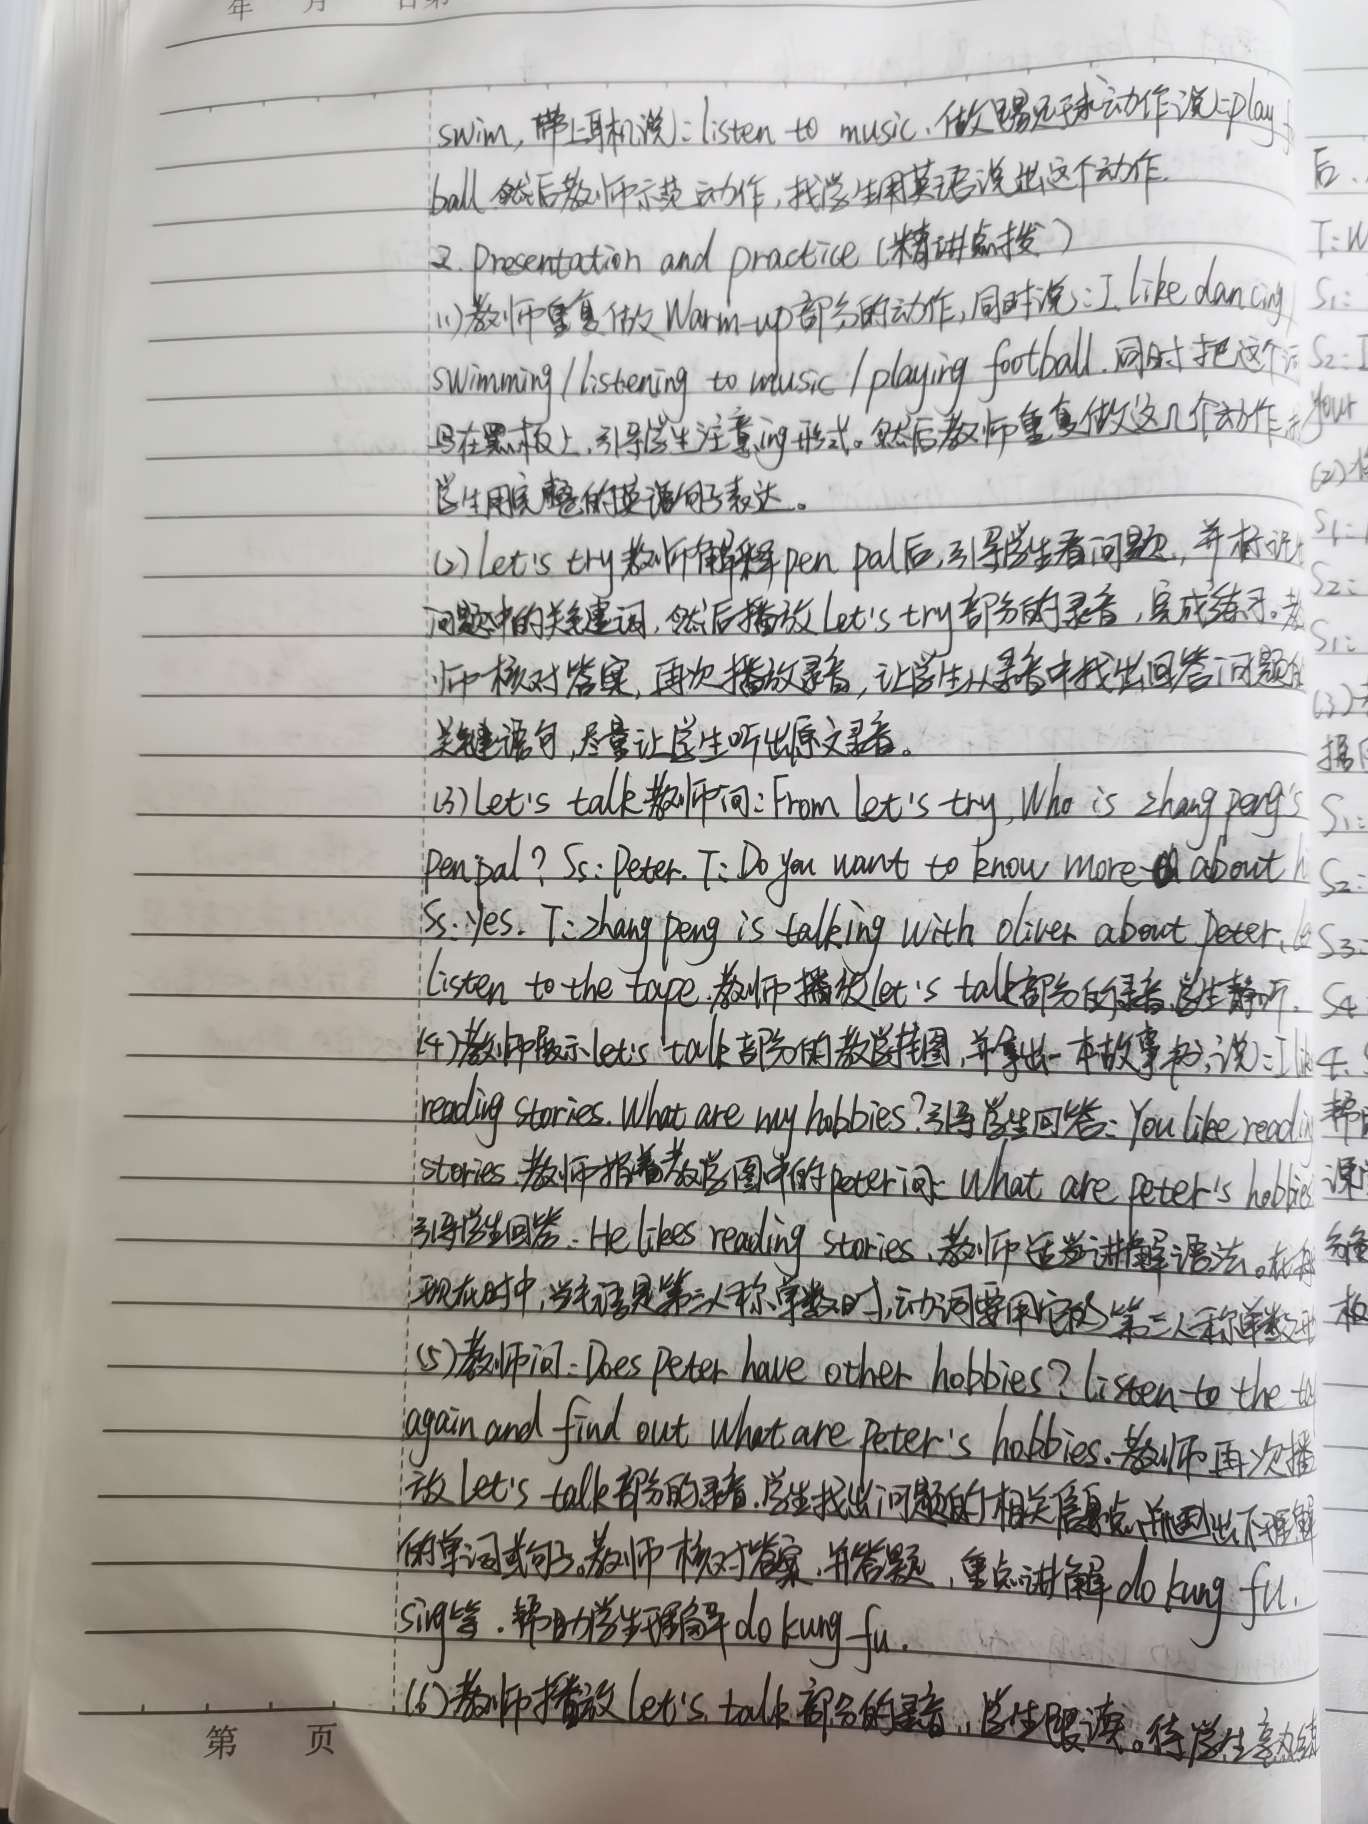 年 月 日 第
swim, 带上耳机说: listen to music, 做踢足球动作说: play f
ball 然后教师示范动作, 找学生用英语说出这个动作.
2. Presentation and practice (精讲点拨)
(1)教师重复做 Warm-up部分的动作, 同时说: I like dancing/
swimming/listening to music/playing football. 同时把这个词
写在黑板上, 引导学生注意ing形式。然后教师重复做这几个动作
学生用完整的英语句子表达。
(2) Let's try 教师解释pen pal后, 引导学生看问题, 并标识
问题中的关键词, 然后播放Let's try部分的录音, 完成练习。教
师核对答案, 再次播放录音, 让学生从录音中找出回答问题的
关键语句, 尽量让学生听出原文录音。
(3) Let's talk 教师问: From Let's try, Who is zhang peng's
pen pal? Ss: Peter. T: Do you want to know more about h
Ss: yes. T: zhang peng is talking with oliver about peter, le
Listen to the tape. 教师播放let's talk部分的录音, 学生静听.
(4)教师展示let's talk部分的教学挂图, 并拿出一本故事书, 说: I lik
reading stories. What are my hobbies? 引导学生回答: You like reading
stories. 教师指着教学图中的peter问: What are peter's hobbies
引导学生回答: He likes reading stories, 教师适当讲解语法。在
现在时中, 当主语是第三人称单数时, 动词要用它的第三人称单数形
(5)教师问: Does Peter have other hobbies? Listen to the ta
again and find out what are peter's hobbies. 教师再次播
放Let's talk部分的录音. 学生找出问题的相关信息点, 并画出不理解
的单词或句子。教师核对答案, 并答题, 重点讲解do kung fu.
sing等. 帮助学生理解do kung fu.
(6)教师播放let's talk部分的录音, 学生跟读。待学生熟练
第 页
后.
T: W
S1:
S2: I
your
(2)
S1:
S2:
S1:
(3)
播
S1:
S2:
S3:
S4
4. S
帮
课
板